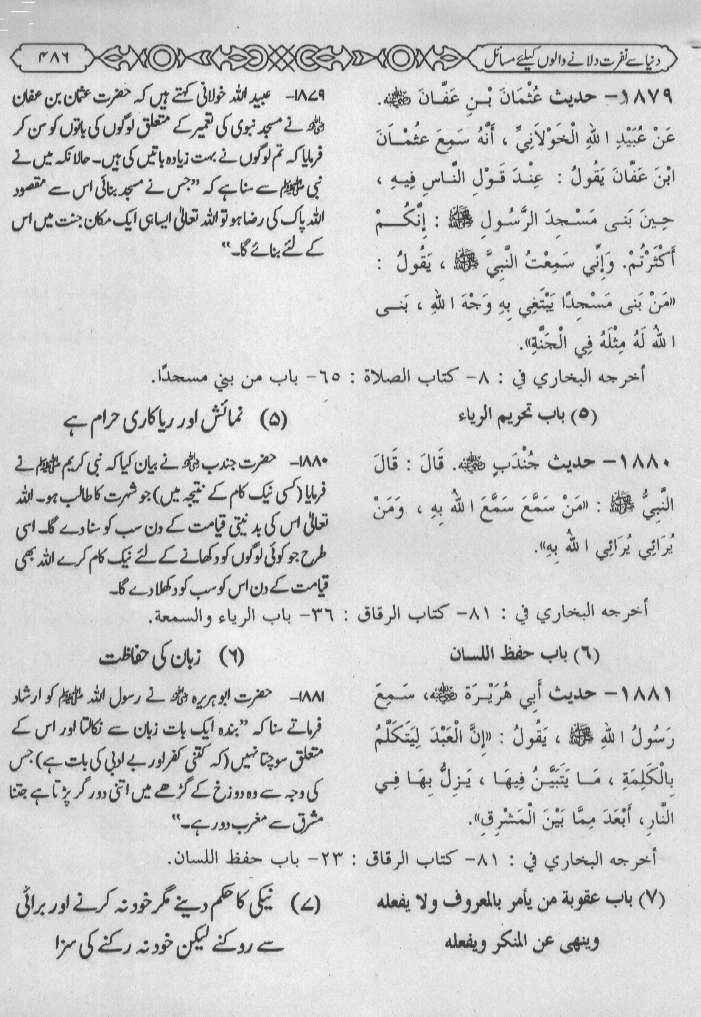 دنیا سے نفرت دلانے والوں کیلئے مسائل
۴۸۶
١٨٧٩- حديث عُثْمَانَ بْنِ عَفَّانَ ﷺ.
عَنْ عُبَيْدِ اللهِ الْخَوْلَانِيِّ ، أَنَّهُ سَمِعَ عثْمَانَ
ابْنَ عَفَّانَ يَقُولُ : عِنْدَ قَوْلِ النَّاسِ فِيهِ ،
حِينَ بَنى مَسْجِدَ الرَّسُولِ ﷺ : إِنَّكُمْ
أَكْثَرْتُمْ. وَإِنِّي سَمِعْتُ النَّبِيَّ ﷺ ، يَقُولُ :
«مَنْ بَنى مَسْجِدًا يَبْتَغِي بِهِ وَجْهَ اللهِ ، بَنى
اللهُ لَهُ مِثْلَهُ فِي الْجَنَّةِ».
۱۸۷۹- عبید اللہ خولانی کہتے ہیں کہ حضرت عثمان بن عفان
نے مسجد نبوی کی تعمیر کے متعلق لوگوں کی باتوں کو سن کر
فرمایا کہ تم لوگوں نے بہت زیادہ باتیں کی ہیں۔ حالانکہ میں نے
نبی ﷺ سے سنا ہے کہ ”جس نے مسجد بنائی اس سے مقصود
اللہ پاک کی رضا ہو تو اللہ تعالیٰ ایسا ہی ایک مکان جنت میں اس
کے لئے بنائے گا۔“
أخرجه البخاري في : ٨- كتاب الصلاة : ٦٥- باب من بني مسجدًا.
(٥) باب تحريم الرياء
(۵) نمائش اور ریاکاری حرام ہے
١٨٨٠- حديث جُنْدَبٍ. قَالَ : قَالَ
النَّبِيُّ ﷺ : «مَنْ سَمَّعَ سَمَّعَ اللهُ بِهِ ، وَمَنْ
يُرَائِي يُرَائِي اللهُ بِهِ».
۱۸۸۰- حضرت جندب نے بیان کیا کہ نبی کریم ﷺ نے
فرمایا (کسی نیک کام کے نتیجہ میں) جو شہرت کا طالب ہو۔ اللہ
تعالیٰ اس کی بد نیتی قیامت کے دن سب کو سنا دے گا۔ اسی
طرح جو کوئی لوگوں کو دکھانے کے لئے نیک کام کرے اللہ بھی
قیامت کے دن اس کو سب کو دکھلا دے گا۔
أخرجه البخاري في : ٨١- كتاب الرقاق : ٣٦- باب الرياء والسمعة.
(٦) باب حفظ اللسان
(۶) زبان کی حفاظت
١٨٨١- حديث أَبِي هُرَيْرَةَ، سَمِعَ
رَسُولُ اللهِ ﷺ ، يَقُولُ : «إِنَّ الْعَبْدَ لِيَتَكَلَّمُ
بِالْكَلِمَةِ ، مَا يَتَبَيَّنُ فِيهَا ، يَزِلُّ بِهَا فِي
النَّارِ، أَبْعَدَ مِمَّا بَيْنَ الْمَشْرِقِ».
۱۸۸۱- حضرت ابو ہریرہ نے رسول اللہ ﷺ کو ارشاد
فرماتے سنا کہ ”بندہ ایک بات زبان سے نکالتا اور اس کے
متعلق سوچتا نہیں (کہ کتنی کفر اور بے ادبی کی بات ہے) جس
کی وجہ سے وہ دوزخ کے گڑھے میں اتنی دور گر پڑتا ہے جتنا
مشرق سے مغرب دور ہے۔“
أخرجه البخاري في : ٨١- كتاب الرقاق : ٢٣- باب حفظ اللسان.
(٧) باب عقوبة من يأمر بالمعروف ولا يفعله
وينهى عن المنكر ويفعله
(۷) نیکی کا حکم دینے مگر خود نہ کرنے اور برائی
سے روکنے لیکن خود نہ رکنے کی سزا